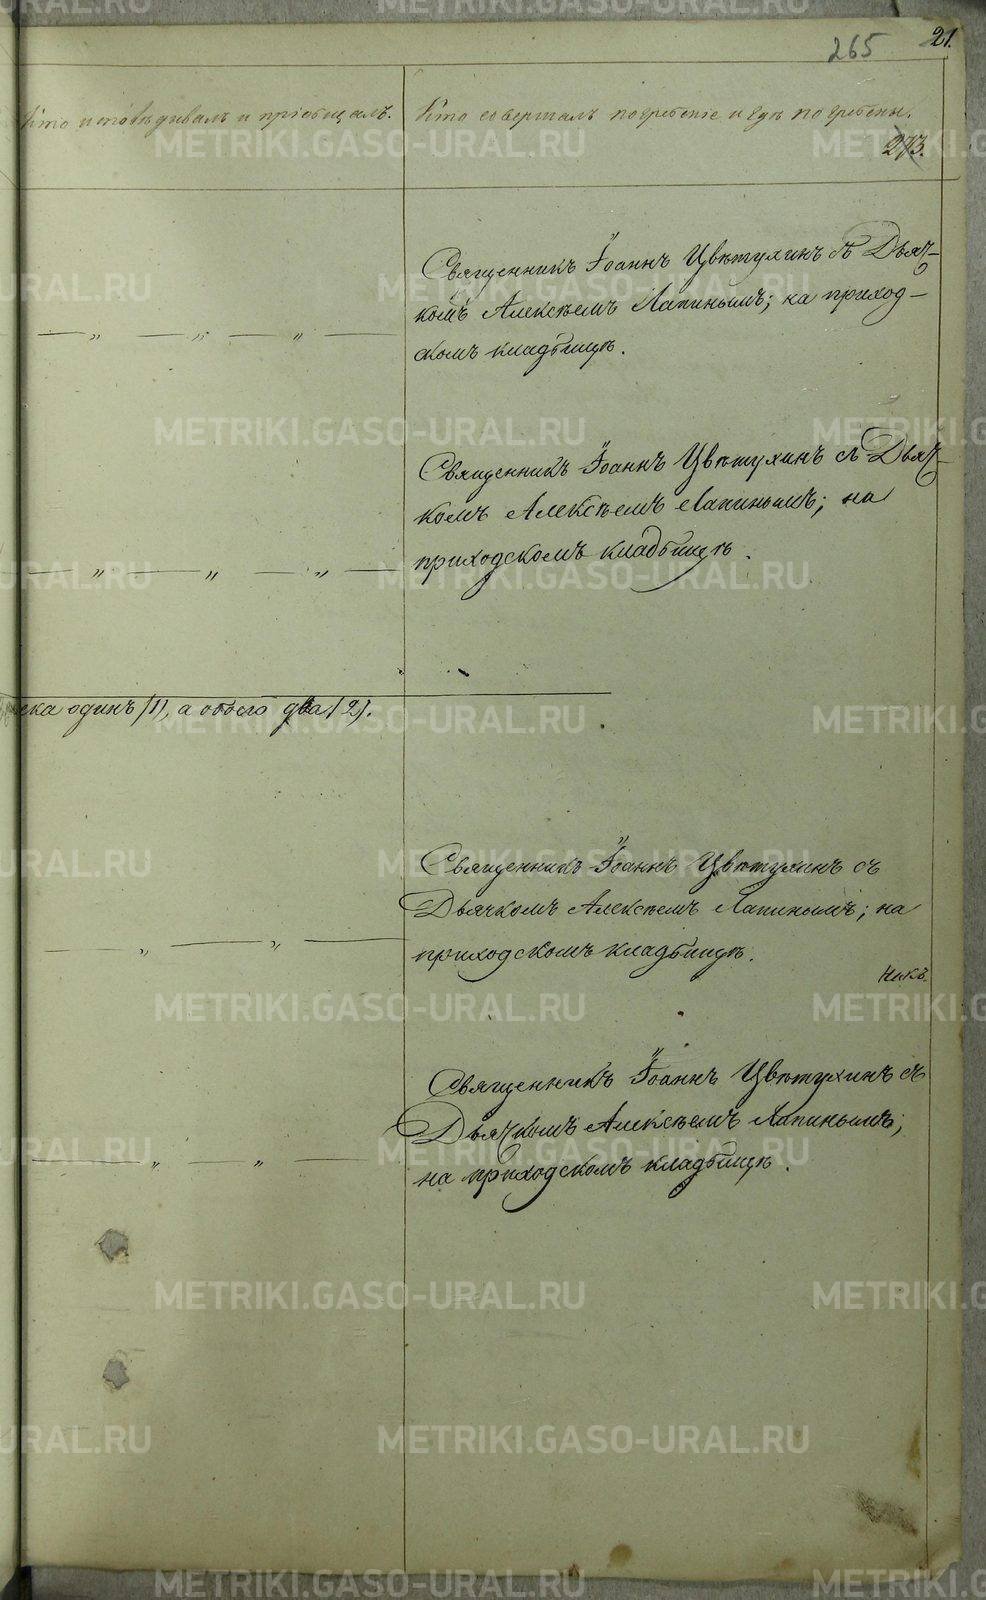 265 21.
Кто исповѣдывалъ и пріобщалъ. Кто совершалъ погребеніе и гдѣ погребены.
273.
Священникъ Іоаннъ Цвѣтухинъ съ Дьяч-
комъ Алексѣемъ Лапинымъ; на приход-
скомъ кладбищѣ.
Священникъ Іоаннъ Цвѣтухинъ съ Дьяч-
комъ Алексѣемъ Лапинымъ; на
приходскомъ кладбищѣ.
ска одинъ /1/, а обоего два /2/.
Священникъ Іоаннъ Цвѣтухинъ съ
Дьячкомъ Алексѣемъ Лапинымъ; на
приходскомъ кладбищѣ.
Священникъ Іоаннъ Цвѣтухинъ съ
Дьячкомъ Алексѣемъ Лапинымъ;
на приходскомъ кладбищѣ.
METRIKI.GASO-URAL.RU